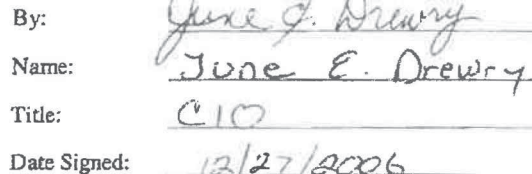 By: June E. Drewry
Name: June E. Drewry
Title: CIO
Date Signed: 12/27/2006